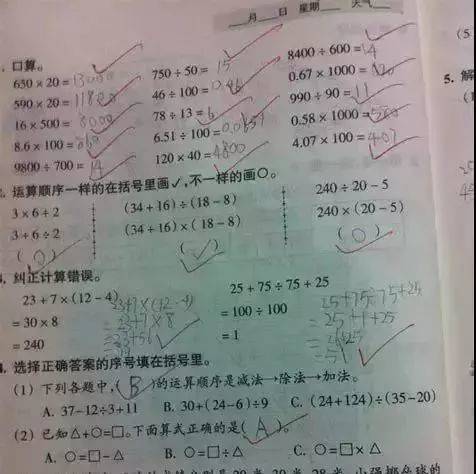 月 日 星期 天气
口算。
650 × 20 = 13000 750 ÷ 50 = 15 8400 ÷ 600 = 14
590 × 20 = 11800 46 ÷ 100 = 0.46 0.67 × 1000 =
16 × 500 = 8000 78 ÷ 13 = 6 990 ÷ 90 = 11
8.6 × 100 = 860 6.51 ÷ 100 = 0.0651 0.58 × 1000 = 580
9800 ÷ 700 = 14 120 × 40 = 4800 4.07 × 100 = 407
运算顺序一样的在括号里画✓,不一样的画○。
3 × 6 ÷ 2 (34 + 16) ÷ (18 - 8) 240 ÷ 20 - 5
3 + 6 ÷ 2 (34 + 16) × (18 - 8) 240 × (20 - 5)
(○) (✓) (○)
纠正计算错误。
23 + 7 × (12 - 4) 23+7×(12-4) 25 + 75 ÷ 75 + 25 25+75÷75+25
= 30 × 8 =23+7×8 = 100 ÷ 100 =25+1+25
= 240 =23+56 = 1 =26+25
=51
选择正确答案的序号填在括号里。
(1) 下列各题中,(B)的运算顺序是减法→除法→加法。
A. 37-12÷3+11 B. 30+(24-6)÷9 C. (24+124)÷(35-20)
(2) 已知△+○=□,下面算式正确的是(A)。
A. ○=□-△ B. ○=□÷△ C. ○=□×△
(5
5. 解